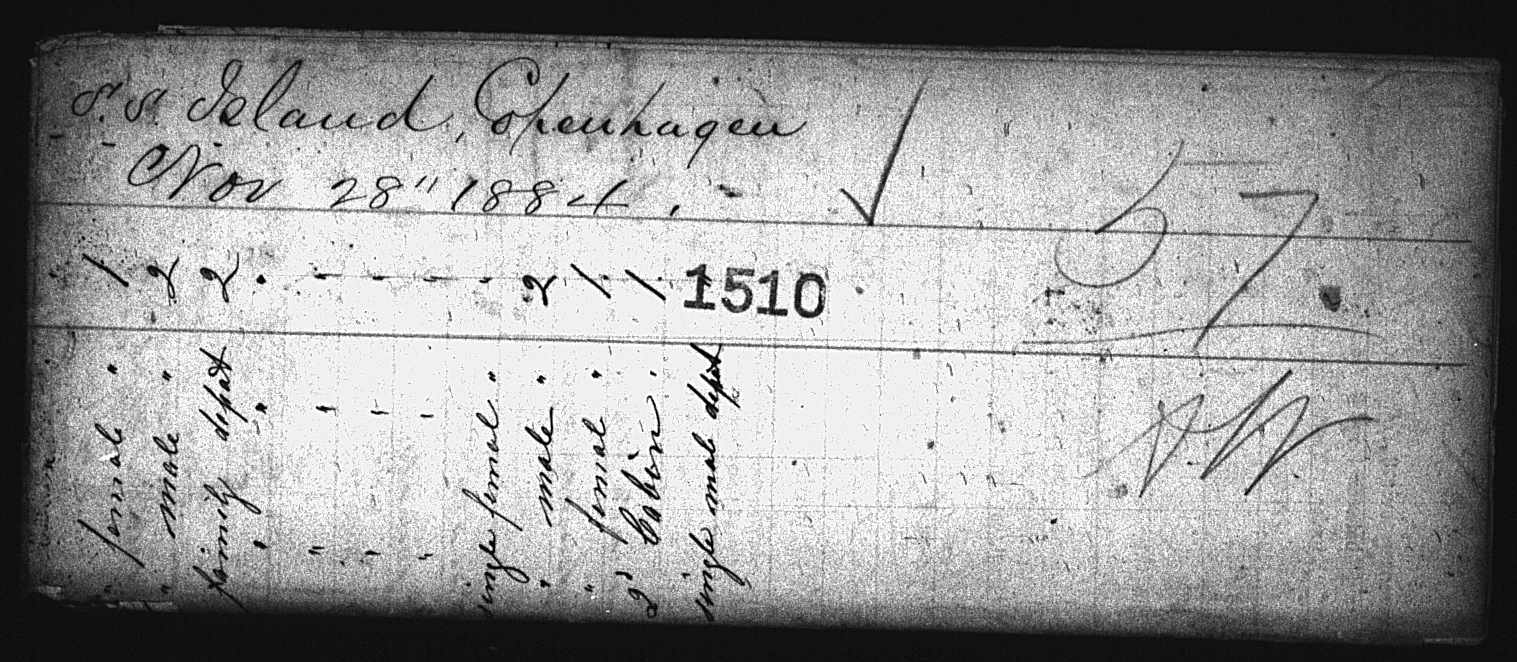 S.S. Island, Copenhagen
Nov 28" 1884.
57
1 2 2 " - - - - 2 1 1 "
1510
" female "
" male "
family depat
" "
" "
" "
" "
single female "
" male "
" female "
2' Cabin "
single male depat